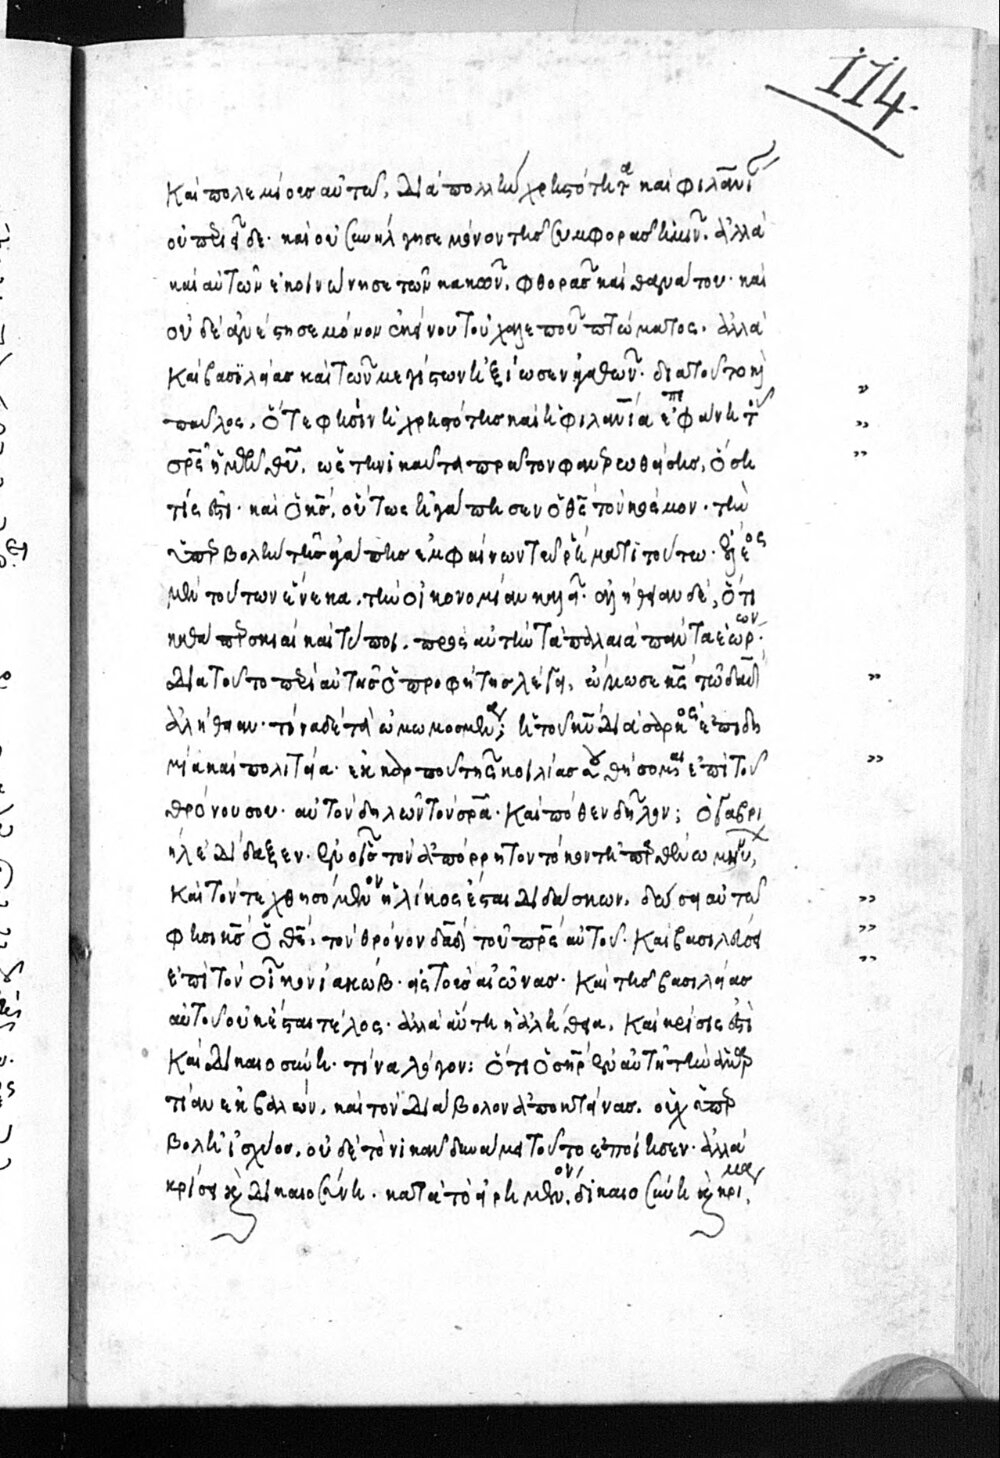 114.
καὶ πολεμίους αὐτοῦ, διὰ πολλὴν χρηστότητα καὶ φιλανι
οὐ περιεῖδε· καὶ οὐ συνήλγησε μόνον τῆς συμφορᾶς ἡμῖν. ἀλλὰ
καὶ αὐτῶν ἐκοινώνησε τῶν κακῶν, φθορᾶς καὶ θανάτου· καὶ
οὐδὲ ἀνέστησε μόνον ἐκείνου τοῦ χαλεποῦ πτώματος. ἀλλὰ
καὶ βασιλείας καὶ τῶν μεγίστων ἠξίωσεν ἀγαθῶν· διὰ τοῦτο κὶ
παῦλος, ὅτε φησὶν ἡ χρηστότης καὶ ἡ φιλανία ἐπεφάνη τοῦ
σρς ἡμῶν θυ, ὡς τινι καὶ τὰ πρῶτον φανερωθείσης, ὅση
τίς ἐστι· καὶ ὁ κς, οὕτως ἠγάπησεν ὁ θς τὸν κόσμον· τὴν
ὑπερβολὴν τῆς ἀγάπης ἐμφαίνων τῷ ῥήματι τούτω·
μὲν τούτων ἕνεκα, τὴν οἰκονομίαν καλεῖ· ἀλήθειαν δὲ, ὅτι
καθάπερ σκιαὶ καὶ τύποι, πρὸς αὐτὴν τὰ παλαιὰ πάντα ἑώρων·
διὰ τοῦτο περὶ αὐτῆς ὁ προφήτης λέγει, ὤμωσε κς τῷ δαδ
ἀλήθειαν· τίνα δὲ τὰ ὠμωμοσμένα; ἡ τοῦ κυ διὰ σαρκὸς ἐπιδη
μία καὶ πολιτεία· ἐκ καρποῦ τῆς κοιλίας σου θήσομαι ἐπὶ τοῦ
θρόνου σου· αὐτὸν δηλῶν τὸν σρα· καὶ πόθεν δῆλον; ὁ γαβρι
ὴλ ἐδίδαξεν· ἐν οἷς τὸν ἀπόρρητον τόκον τῇ παρθένω μηνύων,
καὶ τὸν τεχθησόμενον ἡλίκος ἔσται διδάσκων. δώσει αὐτῷ
φησι κς ὁ θς, τὸν θρόνον δαδ τοῦ πρς αὐτοῦ· καὶ βασιλεύσει
ἐπὶ τὸν οἶκον ἰακώβ· εἰς τοὺς αἰῶνας· καὶ τῆς βασιλείας
αὐτοῦ οὐκ ἔσται τέλος· ἀλλὰ αὕτη ἡ ἀλήθεια. καὶ κρίσις ἐστὶ
καὶ δικαιοσύνη· τίνα λόγον; ὅτι ὁ σηρ ἐν αὐτῇ τὴν ἁμαρ
τίαν ἐκβαλών, καὶ τὸν διάβολον ἀποκτείνας. οὐχ ὑπερ
βολῇ ἰσχύος, οὐδὲ τὸ νικᾶν δυνάμει τοῦτο ἐποίησεν· ἀλλὰ
κρίσει κὶ δικαιοσύνη. κατὰ τὸ εἰρημένον, δικαιοσύνη κὶ κρίμα